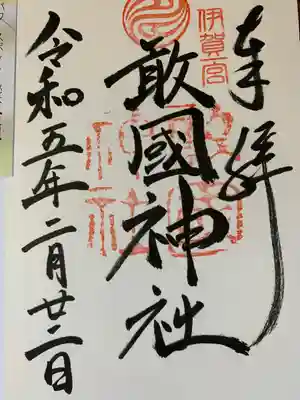 奉拝
伊賀一宮
敢國神社
令和五年二月廿二日